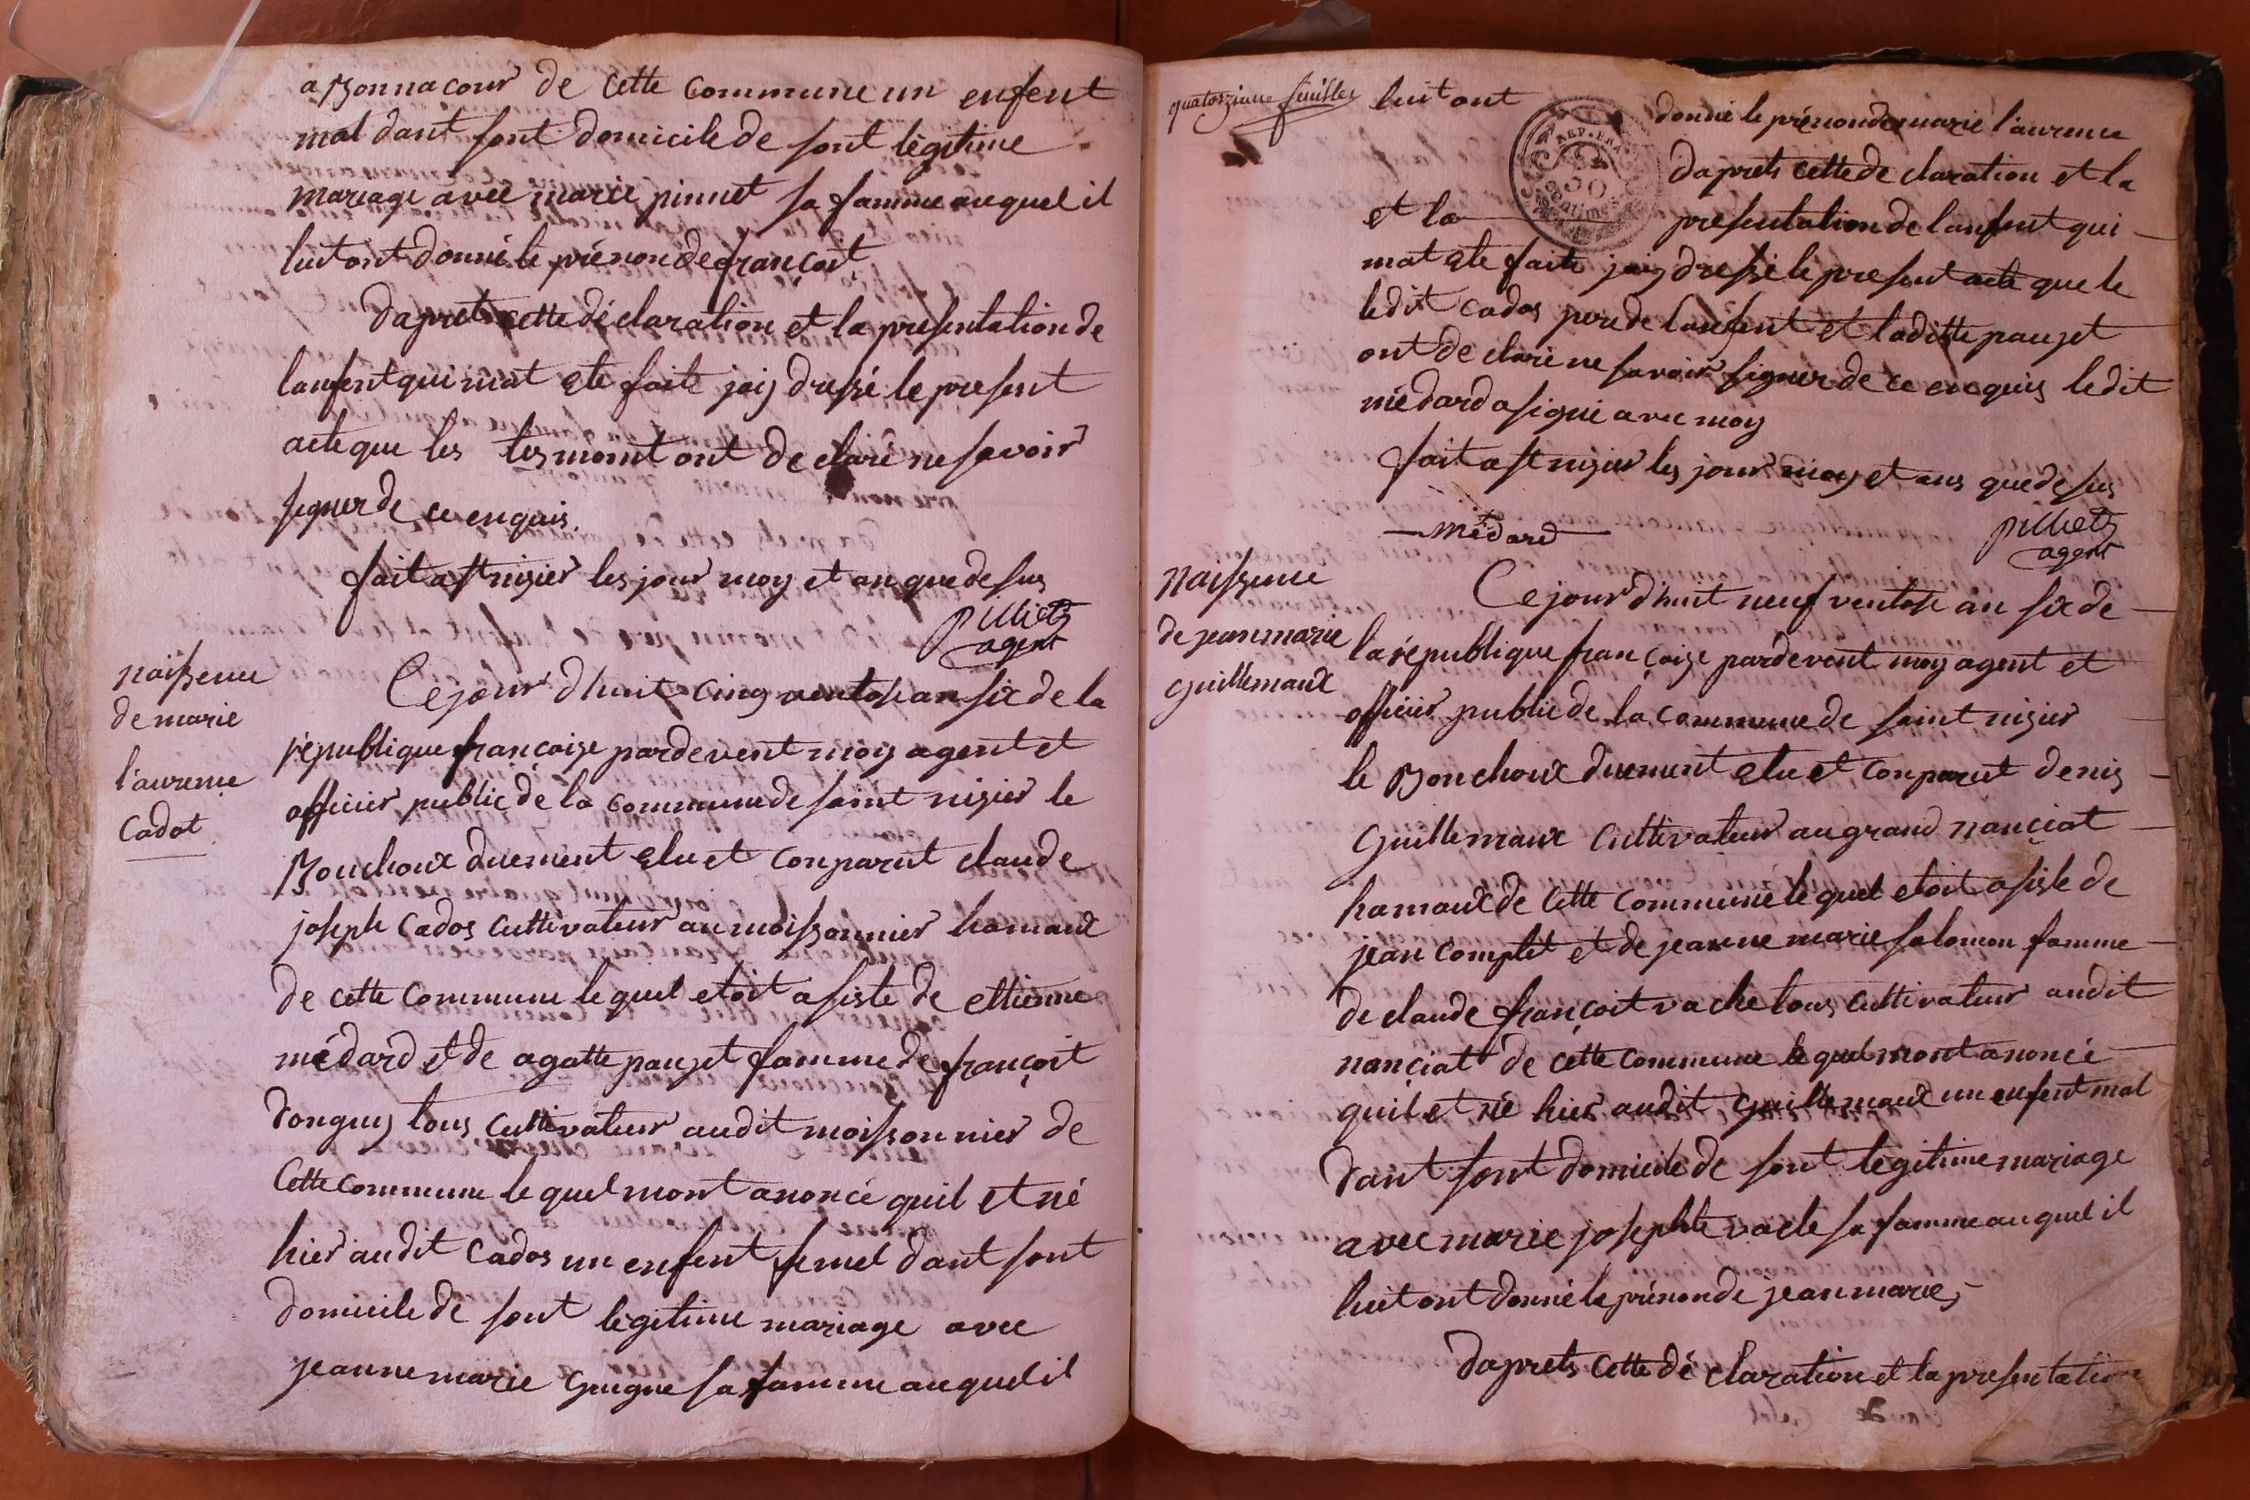 a Bonnacour de cette commune un enfent
mal dant sont domicile de sont légitime
mariage avec marie pinnet sa famme auquel il
luit ont donné le prénon de françoit
daprets cette dé claration et la presentation de
lanfent qui mat ete faite jaij dressé le present
acte que les tesmoint ont de claré ne savoir
signer de ce enquis.
fait a st nizier les jour moy et an que de sus
pillietz
agent
naissence
de marie
l'aurence
Cadot
Ce jour d'huit cinq ventose an six de la
république françoise pardevent moy agent et
officier public de la commune de saint nizier le
Bouchoux duement elu et Conparut claude
joseph Cados cultivateur au moissonnier hamaux
de cette commune le quel etoit asisté de ettienne
médard et de agatte pauget famme de françoit
donguy tous cultivateur audit moissonnier de
Cette commune le quel mont anoncé quil et né
hier audit Cados un enfent femel dant sont
domicile de sont legitime mariage avec
jeanne marie guigne sa famme auquel il
quatorzieme feuillet
luit ont donné le prénon de marie l'aurence
REP. FRA.
50
Centimes
daprets cette de claration et la
et la presentation de lanfent qui
mat ete faite jaij dressé le present acte que le
ledit Cados pere de lanfent et laditte pauget
ont de claré ne savoir signer de ce enquis ledit
médard a signé avec moy
fait a st nizier les jour moy et ans que de sus
médard
pillietz
agent
naissence
de jean marie
guillemaux
Ce jour d'huit neuf ventose an six de
la république françoise pardevent moy agent et
officier public de la commune de saint nizier
le Bouchoux duement elu et Conparut denis
guillemaux Cultivateur au grand nanciat
hamaux de cette commune le quel etoit asisté de
jean complet et de jeanne marie salomon famme
de claude françoit vache tous cultivateur audit
nançiat de cette commune le quel mont anoncé
quil et né hier audit guillemaux un enfent mal
dant sont domicile de sont legitime mariage
avec marie josephte vache sa famme auquel il
luit ont donné le prénon de jean marie,
daprets cette dé claration et la presentation
de